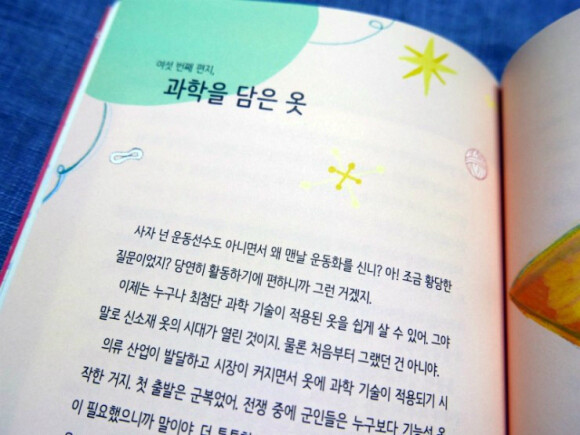 여섯 번째 편지,
과학을 담은 옷
사자 넌 운동선수도 아니면서 왜 맨날 운동화를 신니? 아! 조금 황당한
질문이었지? 당연히 활동하기에 편하니까 그런 거겠지.
이제는 누구나 최첨단 과학 기술이 적용된 옷을 쉽게 살 수 있어. 그야
말로 신소재 옷의 시대가 열린 것이지. 물론 처음부터 그랬던 건 아니야.
의류 산업이 발달하고 시장이 커지면서 옷에 과학 기술이 적용되기 시
작한 거지. 첫 출발은 군복었어. 전쟁 중에 군인들은 누구보다 기능성 옷
이 필요했으니까 말이야. 더 튼튼한